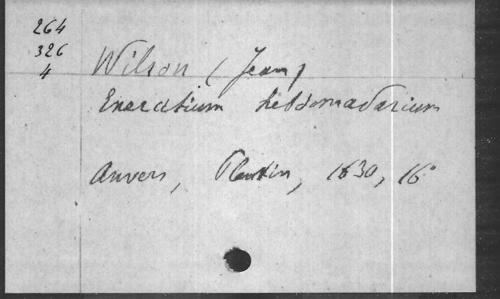 264
326
4
Wilson (Jean)
Exercitium hebdomadarium
Anvers, Plantin, 1630, 16°